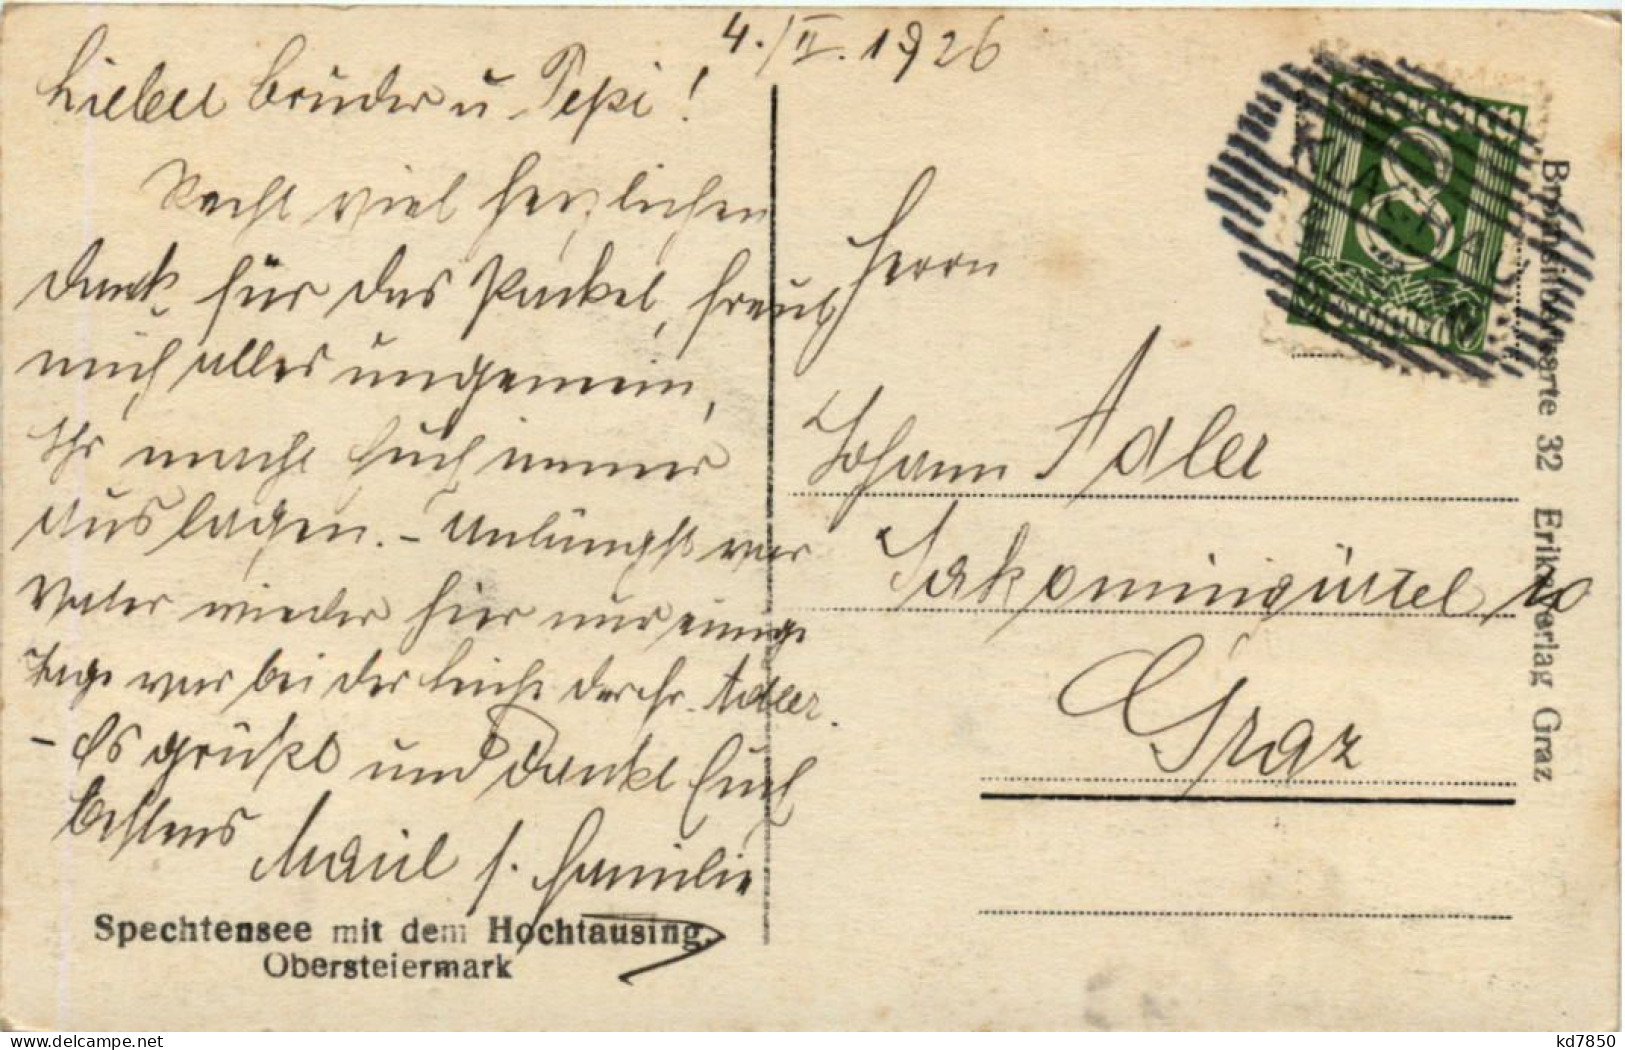 4./II. 1926
Lieber Bruder u. Pepi!
Recht viel herzlichen
Dank für das Packel, freut
mich alles ungemein,
Ihr macht Euch immer
Auslagen. – Unlängst war
Vater wieder hier nur einige
Tage war bei der Leiche der Fr. Adler.
– Es grüßt und dankt Euch
bestens
s. Familie
Spechtensee mit dem Hochtausing.
Obersteiermark
Herrn
Johann Adler
Jakominigürtel 10
Graz
8
Bromsilberkarte 32 Erika Verlag Graz
kd7850